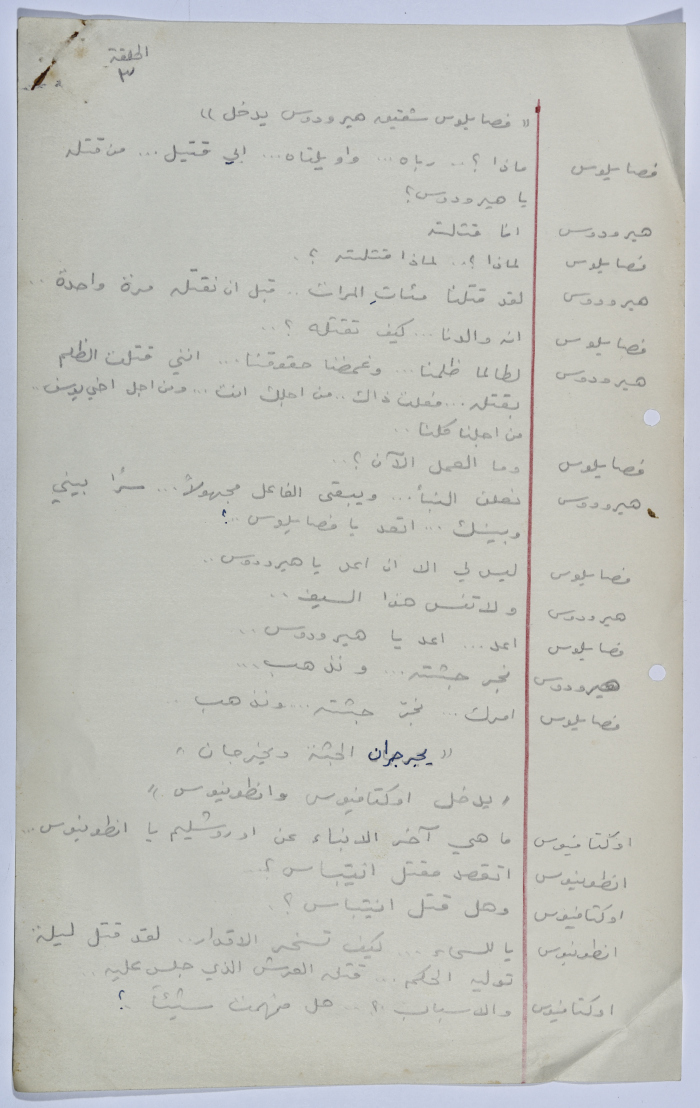 الحلقة
٣
« فصايلوس شقيق هيرودوس يدخل »
فصايلوس ماذا ؟.. رباه ... واويلتاه ... ابي قتيل ... من قتله
يا هيرودوس ؟
هيرودوس انا قتلته
فصايلوس لماذا ؟.. لماذا قتلته ؟.
هيرودوس لقد قتلنا مئات المرات .. قبل ان نقتله مرة واحدة ..
فصايلوس انه والدنا ... كيف تقتله ؟..
هيرودوس لطالما ظلمنا ... وغمضنا حقوقنا ... انني قتلت الظلم
بقتله ... فعلت ذاك .. من اجلك انت ... ومن اجل اخي يوسف ..
من اجلنا كلنا ..
فصايلوس وما العمل الآن ؟..
هيرودوس نعلن النبأ ... ويبقى الفاعل مجهولاً ... سراً بيني
وبينك ... اتعد يا فصايلوس ..؟
فصايلوس ليس لي الا ان اعد يا هيرودوس ..
هيرودوس ولا تنس هذا السيف ..
فصايلوس اعد ... اعد يا هيرودوس ..
هيرودوس نجر جثته ... ونذهب ...
فصايلوس امرك ... نجرّ جثته ... ونذهب ..
« يجرجران الجثة ويخرجان »
« يدخل اوكتافيوس وانطونيوس »
اوكتافيوس ما هي آخر الانباء عن اورشليم يا انطونيوس ...
انطونيوس اتقصد مقتل انتيباس ؟..
اوكتافيوس وهل قتل انتيباس ؟.
انطونيوس يا للسماء ... كيف تسخر الاقدار .. لقد قتل ليلة
توليه الحكم ... قتله العرش الذي جلس عليه ..
اوكتافيوس والاسباب ؟.. هل فهمت شيئاً ..؟